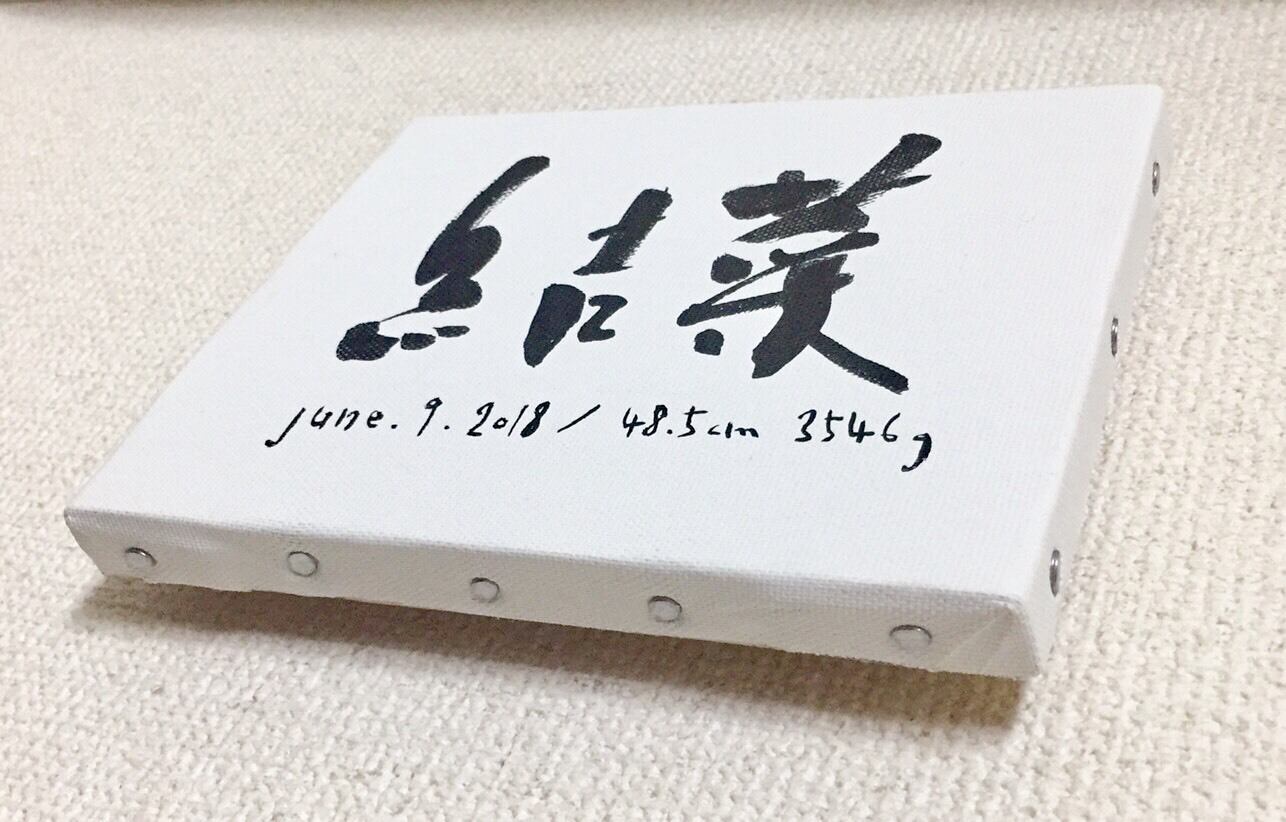 結菜
june. 9. 2018 / 48.5cm 3546g